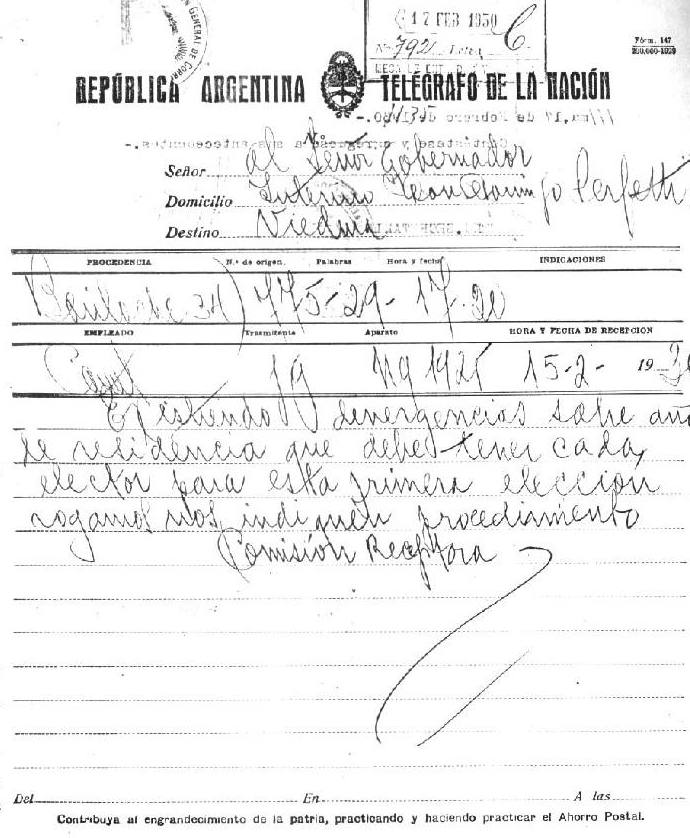 17 FEB 1950
Nº 7921 Letra C
Fórm. 147
REPÚBLICA ARGENTINA TELÉGRAFO DE LA NACIÓN
Señor al Señor Gobernador
Domicilio Interino Perfetti
Destino Viedma
PROCEDENCIA N.º de origen. Palabras Hora y fecha INDICACIONES
Bariloche 34 775-29-17-20
EMPLEADO Trasmitente Aparato HORA Y FECHA DE RECEPCION
19 1925 15-2- 19
Existiendo divergencias sobre año
de residencia que debe tener cada
elector para esta primera eleccion
rogamos nos indiquen procediamento
Comisión Receptora
Del En A las
Contribuya al engrandecimiento de la patria, practicando y haciendo practicar el Ahorro Postal.